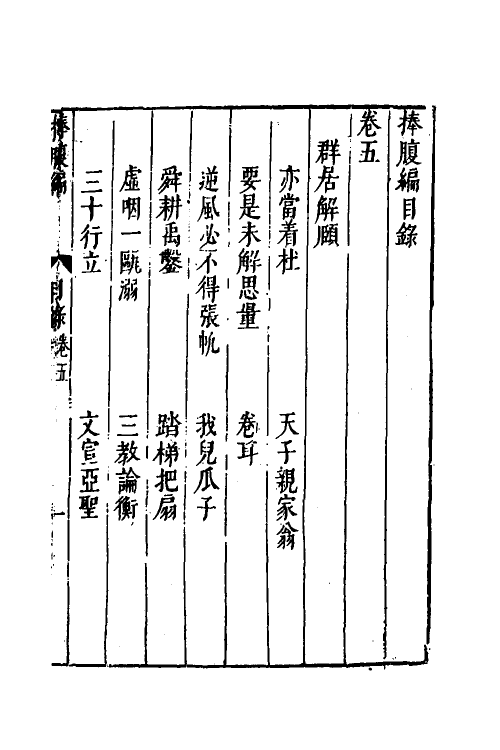 捧腹編目錄
卷五
群居解頤
亦當着杜 天子親家翁
要是未解思量 卷耳
逆風必不得張帆 我兒瓜子
舜耕禹鑿 踏梯把扇
虛咽一甌溺 三教論衡
三十行立 文宣亞聖
捧腹編 目錄卷五 一